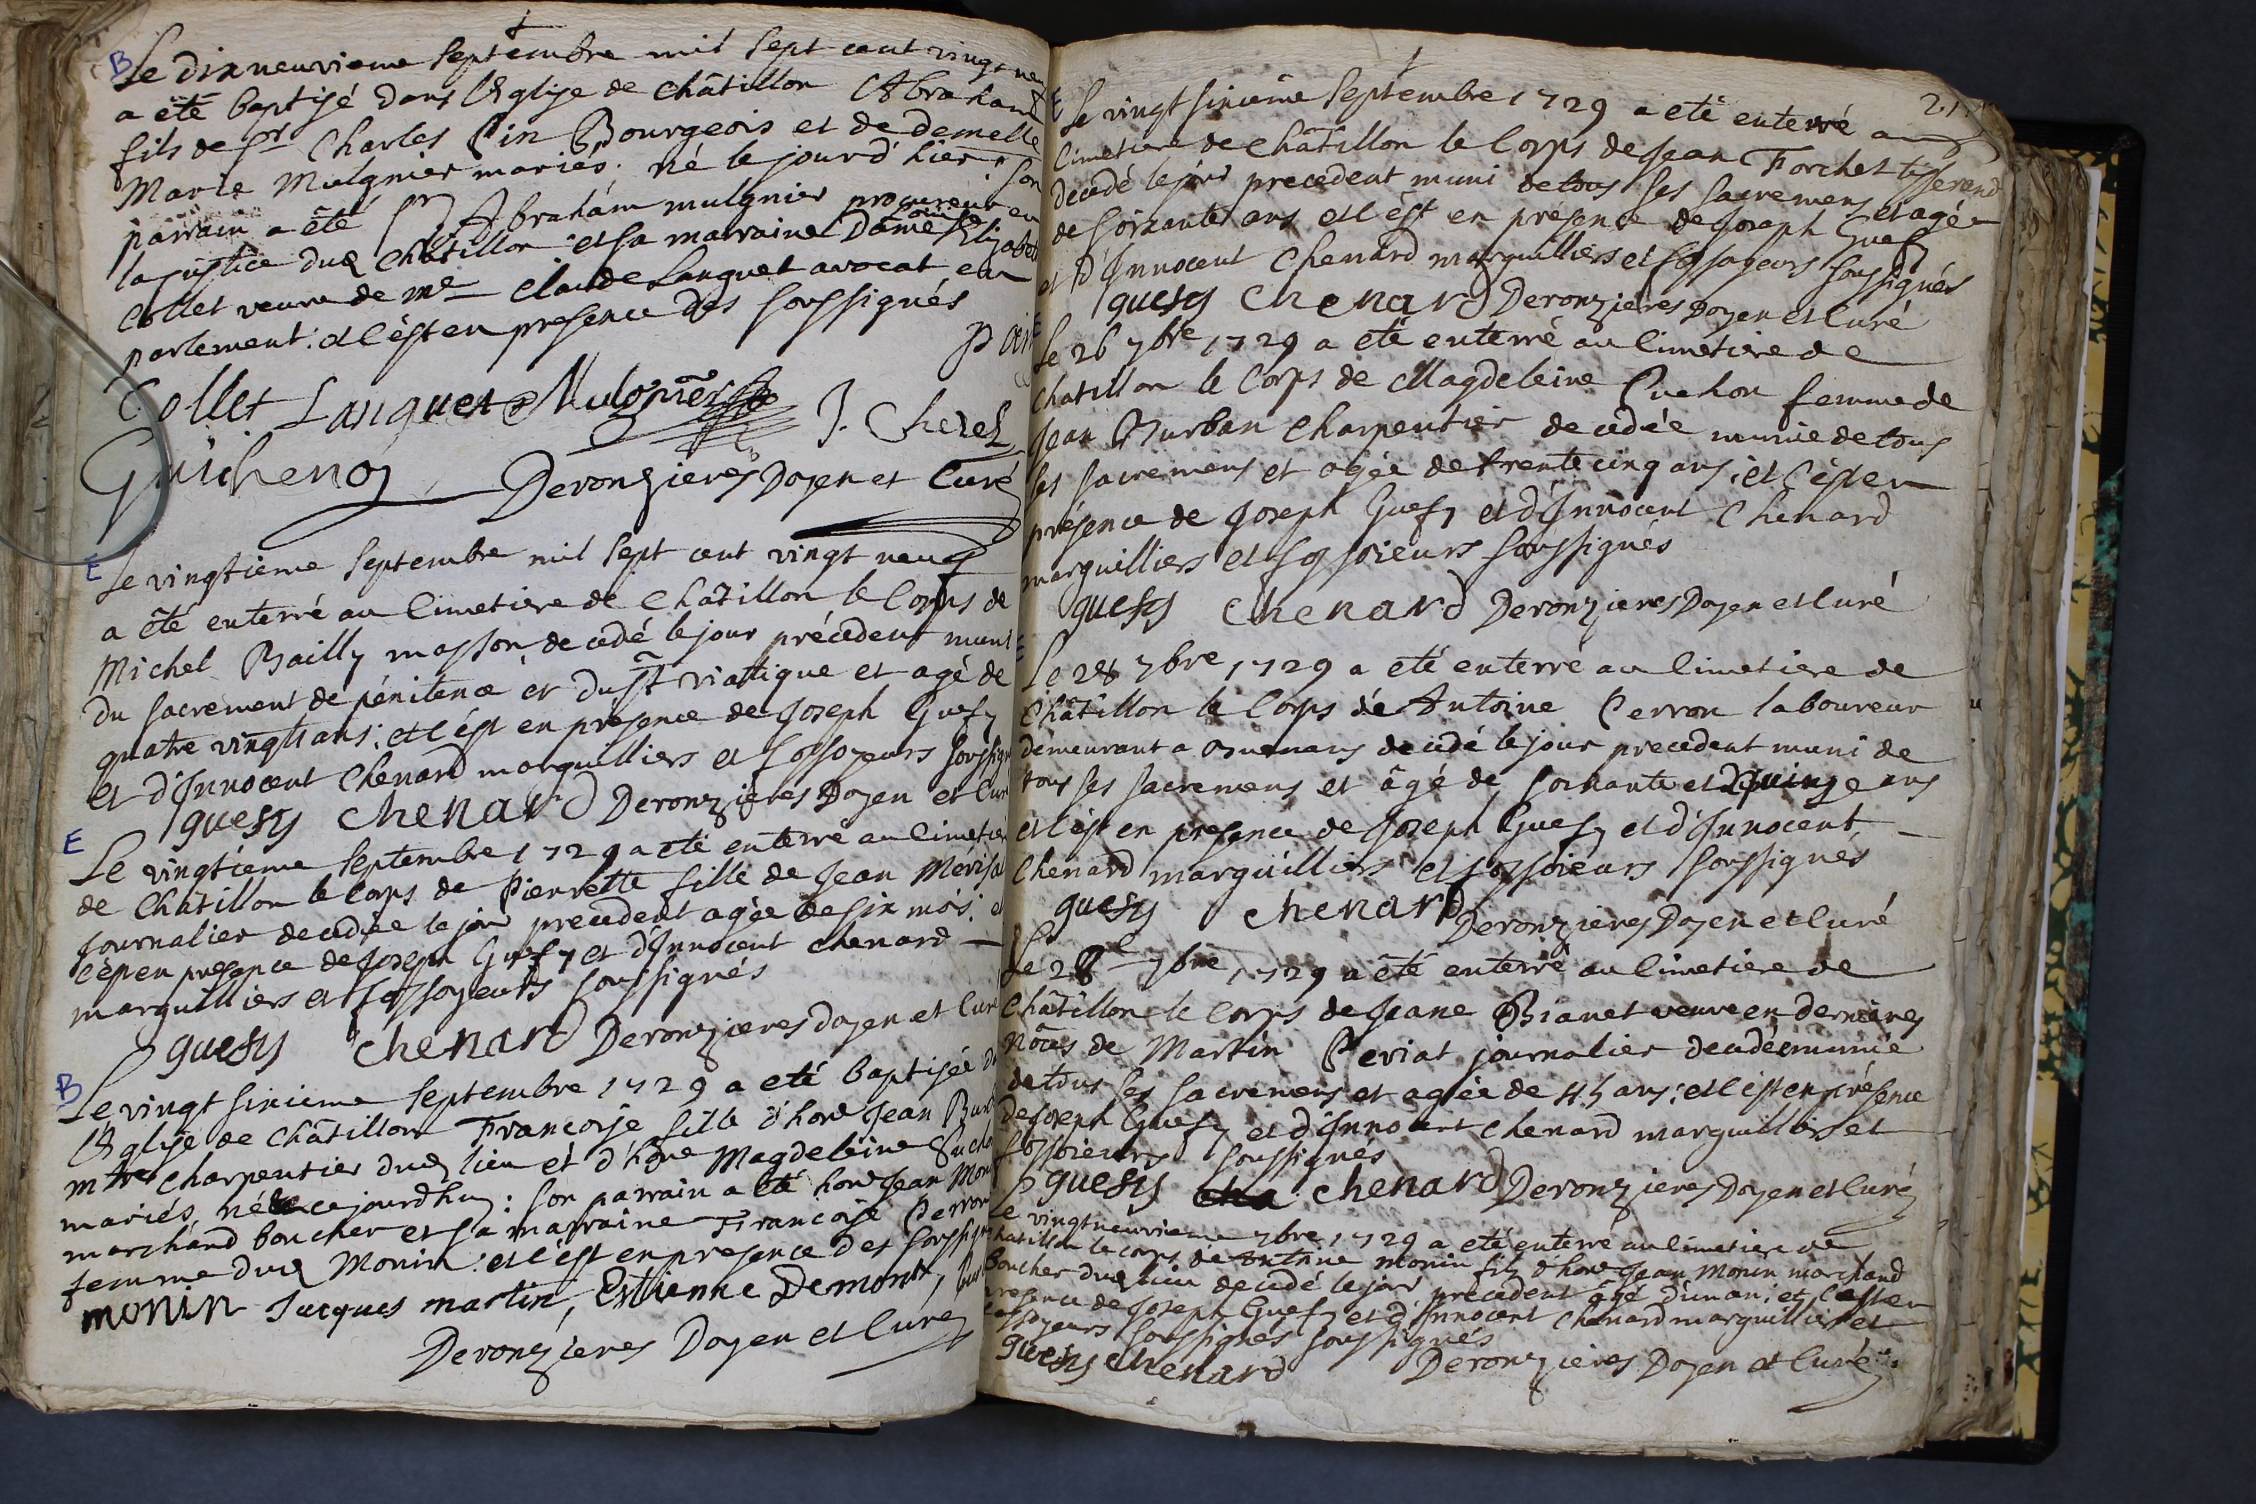 B
Le dixneuvieme Septembre mil Sept cent vingt neu
a êté baptisé dans l'Eglise de châtillon Abraham
fils de Sr Charles Pin Bourgeois et de demelle
Marie Mulgnier mariés. né le jour d'hier: son
parrain a êté Sr Abrahám mulgnier procureur en
la justice dud Chátillon et sa marraine Dame Elizabet
Collet veuve de me Claude Languet avocat en
parlement: et c'ést en presence des soussignés
Collet Languet Mulgnier J. Cherel
Guichenon Deronzieres Doyen et Curé
E
Le vingtieme Septembre mil Sept cent vingt neuf
a êté enterré au Cimetiere de Châtillon le Corps de
Michel Bailly masson, decedé le jour précedent muni
du sacrement de pénitence et du st viattique et agé de
quatre vingts ans: et c'ést en presence de Joseph Guesy
et d'Innocent Chenard marguilliers et fossoyeurs soussign
guesy chenard Deronzieres Doyen et Curé
E
Le vingtieme Septembre 1729 a eté enterré au Cimetier
de Châtillon le Corps de Pierrette fille de Jean
Journalier decedée le jour precedent agée de six mois: et
c'ést en presence de Joseph Guesy et d'Innocent chenard
marguilliers et fossoyeurs soussignés
guesy chenard Deronzieres doyen et Curé
B
Le vingt sixieme Septembre 1729 a eté baptisée d
l'Eglise de Châtillon Françoise fille d'hone Jean Burb
mtre Charpentier dud lieu et d'hone Magdeleine
mariés, née ce jourdhuy: son parrain a êté hone Jean Mon
marchand boucher et sa marraine Francoise Perron
femme dud Monin: et c'ést en presence des soussign
monin Jacques martin, Estienne Demont,
Deronzieres Doyen et Curé
2.1.
Le vingt sixieme Septembre 1729 a eté enterré au
Cimetiere de Châtillon le Corps de Jean Forchet tisserand
decedé le jour precedent muni de tous ses sacremens et agé
de soixante ans et c'ést en présence de Joseph Guesy
et d'Innocent Chenard marguilliers et fossoyeurs soussignés
guesy chenard Deronzieres Doyen et Curé
Le 26 7bre 1729 a eté enterré au Cimetiere de
chatillon le Corps de Magdeleine femme de
Jean Burban Charpentier decedée munie de tous
ses sacremens et agée de trente cinq ans: et c'ést en
présence de Joseph Guesy et d'Innocent Chenard
marguilliers et fossoieurs soussignés
guesy chenard Deronzieres Doyen et Curé
Le 28 7bre 1729 a eté enterré au Cimetiere de
Châtillon le Corps de Antoine Perron laboureur
demeurant a decedé le jour precedent muni de
tous ses sacremens et âgé de soixante et quinze ans
et c'ést en presence de Joseph Guesy et d'Innocent
Chenard marguilliers et fossoieurs soussignés
guesy chenard Deronzieres Doyen et Curé
Le 28e 7bre 1729 a êté enterré au Cimetiere de
Châtillon le Corps de Jeane Bianet veuve en dernieres
nôces de Martin Periat journalier decedée munie
de tous ses sacremens et agée de 45 ans: et c'ést en présence
de Joseph Guesy et d'Innocent chenard marguilliers et
fossoieurs soussignés
guesy chenard Deronzieres Doyen et Curé
Le vingtneuvieme 7bre 1729 a eté enterré au Cimetiere de
chatillon le corps de Antoine Monin fils d'hone Jean Monin marchand
Boucher dud lieu decedé le jour precedent âgé d'un an: et c'est en
presence de Joseph Guesy et d'Innocent Chenard marguilliers et
fossoyeurs soussignés soussignés
guesy chenard Deronzieres Doyen et Curé